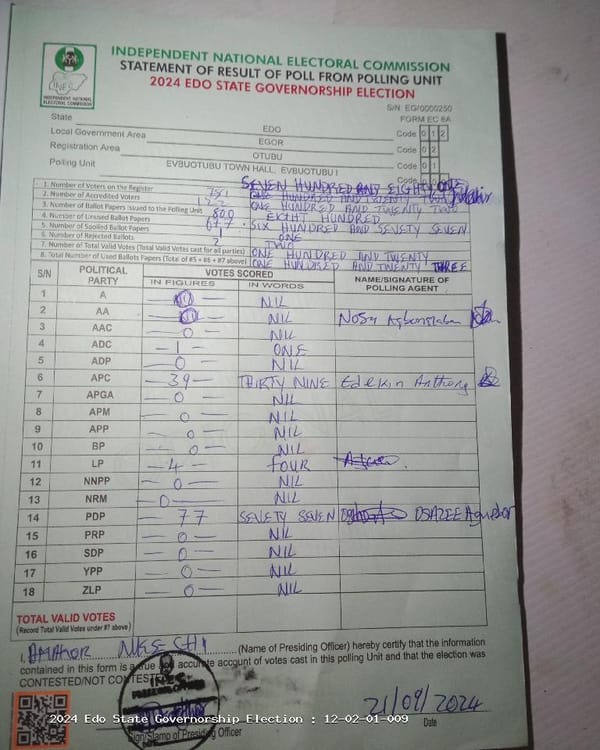 INDEPENDENT NATIONAL ELECTORAL COMMISSION
STATEMENT OF RESULT OF POLL FROM POLLING UNIT
2024 EDO STATE GOVERNORSHIP ELECTION
INDEPENDENT NATIONAL ELECTORAL COMMISSION
S/N EG/0000250
FORM EC 8A
State EDO Code 0 1 2
Local Government Area EGOR Code 0 2
Registration Area OTUBU Code 0 1
Polling Unit EVBUOTUBU TOWN HALL, EVBUOTUBU I Code
1. Number of Voters on the Register SEVEN HUNDRED AND EIGHTY ONE
2. Number of Accredited Voters ONE HUNDRED AND TWENTY
3. Number of Ballot Papers Issued to the Polling Unit ONE HUNDRED AND TWENTY TWO
4. Number of Unused Ballot Papers 800 EIGHT HUNDRED
5. Number of Spoiled Ballot Papers SIX HUNDRED AND SEVETY SEVEN
6. Number of Rejected Ballots ONE
7. Number of Total Valid Votes (Total Valid Votes cast for all parties) 2 TWO
8. Total Number of Used Ballots Papers (Total of #5 + #6 + #7 above) ONE HUNDRED AND TWENTY
ONE HUNDRED AND TWENTY THREE
S/N POLITICAL PARTY VOTES SCORED IN FIGURES IN WORDS NAME/SIGNATURE OF POLLING AGENT
1 A NIL
2 AA NIL Nosa
3 AAC - 0 - NIL
4 ADC - 1 - ONE
5 ADP - 0 - NIL
6 APC - 39 - THIRTY NINE Edekin Anthony
7 APGA - 0 - NIL
8 APM - 0 - NIL
9 APP - 0 - NIL
10 BP - 0 - NIL
11 LP - 4 - FOUR
12 NNPP - 0 - NIL
13 NRM - 0 - NIL
14 PDP - 77 SEVETY SEVEN OSAZEE
15 PRP - 0 - NIL
16 SDP - 0 - NIL
17 YPP - 0 - NIL
18 ZLP - 0 - NIL
TOTAL VALID VOTES
(Record Total Valid Votes under #7 above)
I, AMAHOR NKECHI (Name of Presiding Officer) hereby certify that the information
contained in this form is a true and accurate account of votes cast in this polling Unit and that the election was
CONTESTED/NOT CONTESTED
21/09/2024
Sign/Stamp of Presiding Officer Date
2024 Edo State Governorship Election : 12-02-01-009